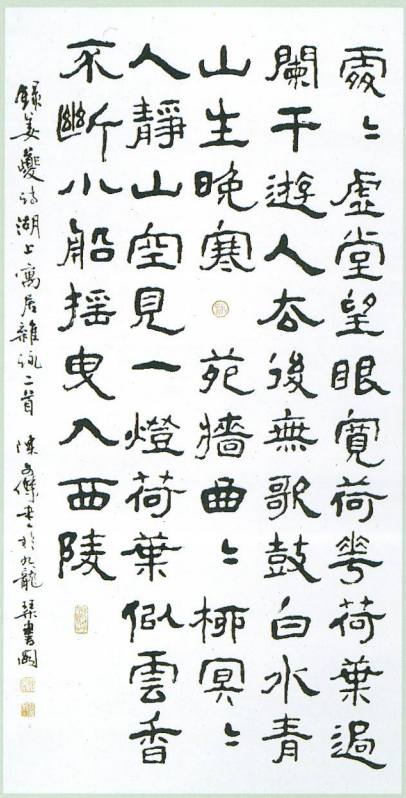 處々虛堂望眼寬荷花荷葉過
闌干遊人去後無歌鼓白水青
山生晚寒 苑牆曲々柳冥々
人靜山空見一燈荷葉似雲香
不斷小船搖曳入西陵
錄姜夔詩湖上寓居雜詠二首 陳文傑書於九龍琴書閣